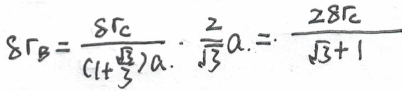 δr_B = \frac{δr_C}{(1+\frac{\sqrt{3}}{3})a.} · \frac{2}{\sqrt{3}}a. = · \frac{2δr_C}{\sqrt{3}+1}